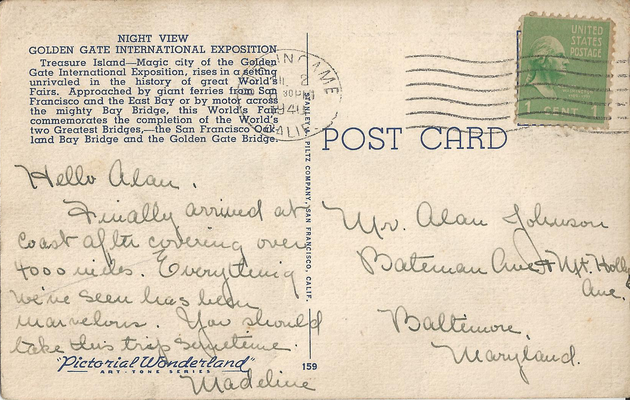 NIGHT VIEW
GOLDEN GATE INTERNATIONAL EXPOSITION
Treasure Island—Magic city of the Golden
Gate International Exposition, rises in a setting
unrivaled in the history of great World's
Fairs. Approached by giant ferries from San
Francisco and the East Bay or by motor across
the mighty Bay Bridge, this World's Fair
commemorates the completion of the World's
two Greatest Bridges,—the San Francisco Oak-
land Bay Bridge and the Golden Gate Bridge.
Hello Alan.
Finally arrived at
coast after covering over
4000 miles. Everything
we've seen has been
marvelous. You should
take this trip sometime.
Madeline
"Pictorial Wonderland"
ART-TONE SERIES
159
STANLEY A. PILTZ COMPANY, SAN FRANCISCO, CALIF.
2
30PM
CALIF
UNITED
STATES
POSTAGE
1 CENT 1
POST CARD
Mr. Alan Johnson
Bateman Ave & Mt. Holly
Ave.
Baltimore,
Maryland.